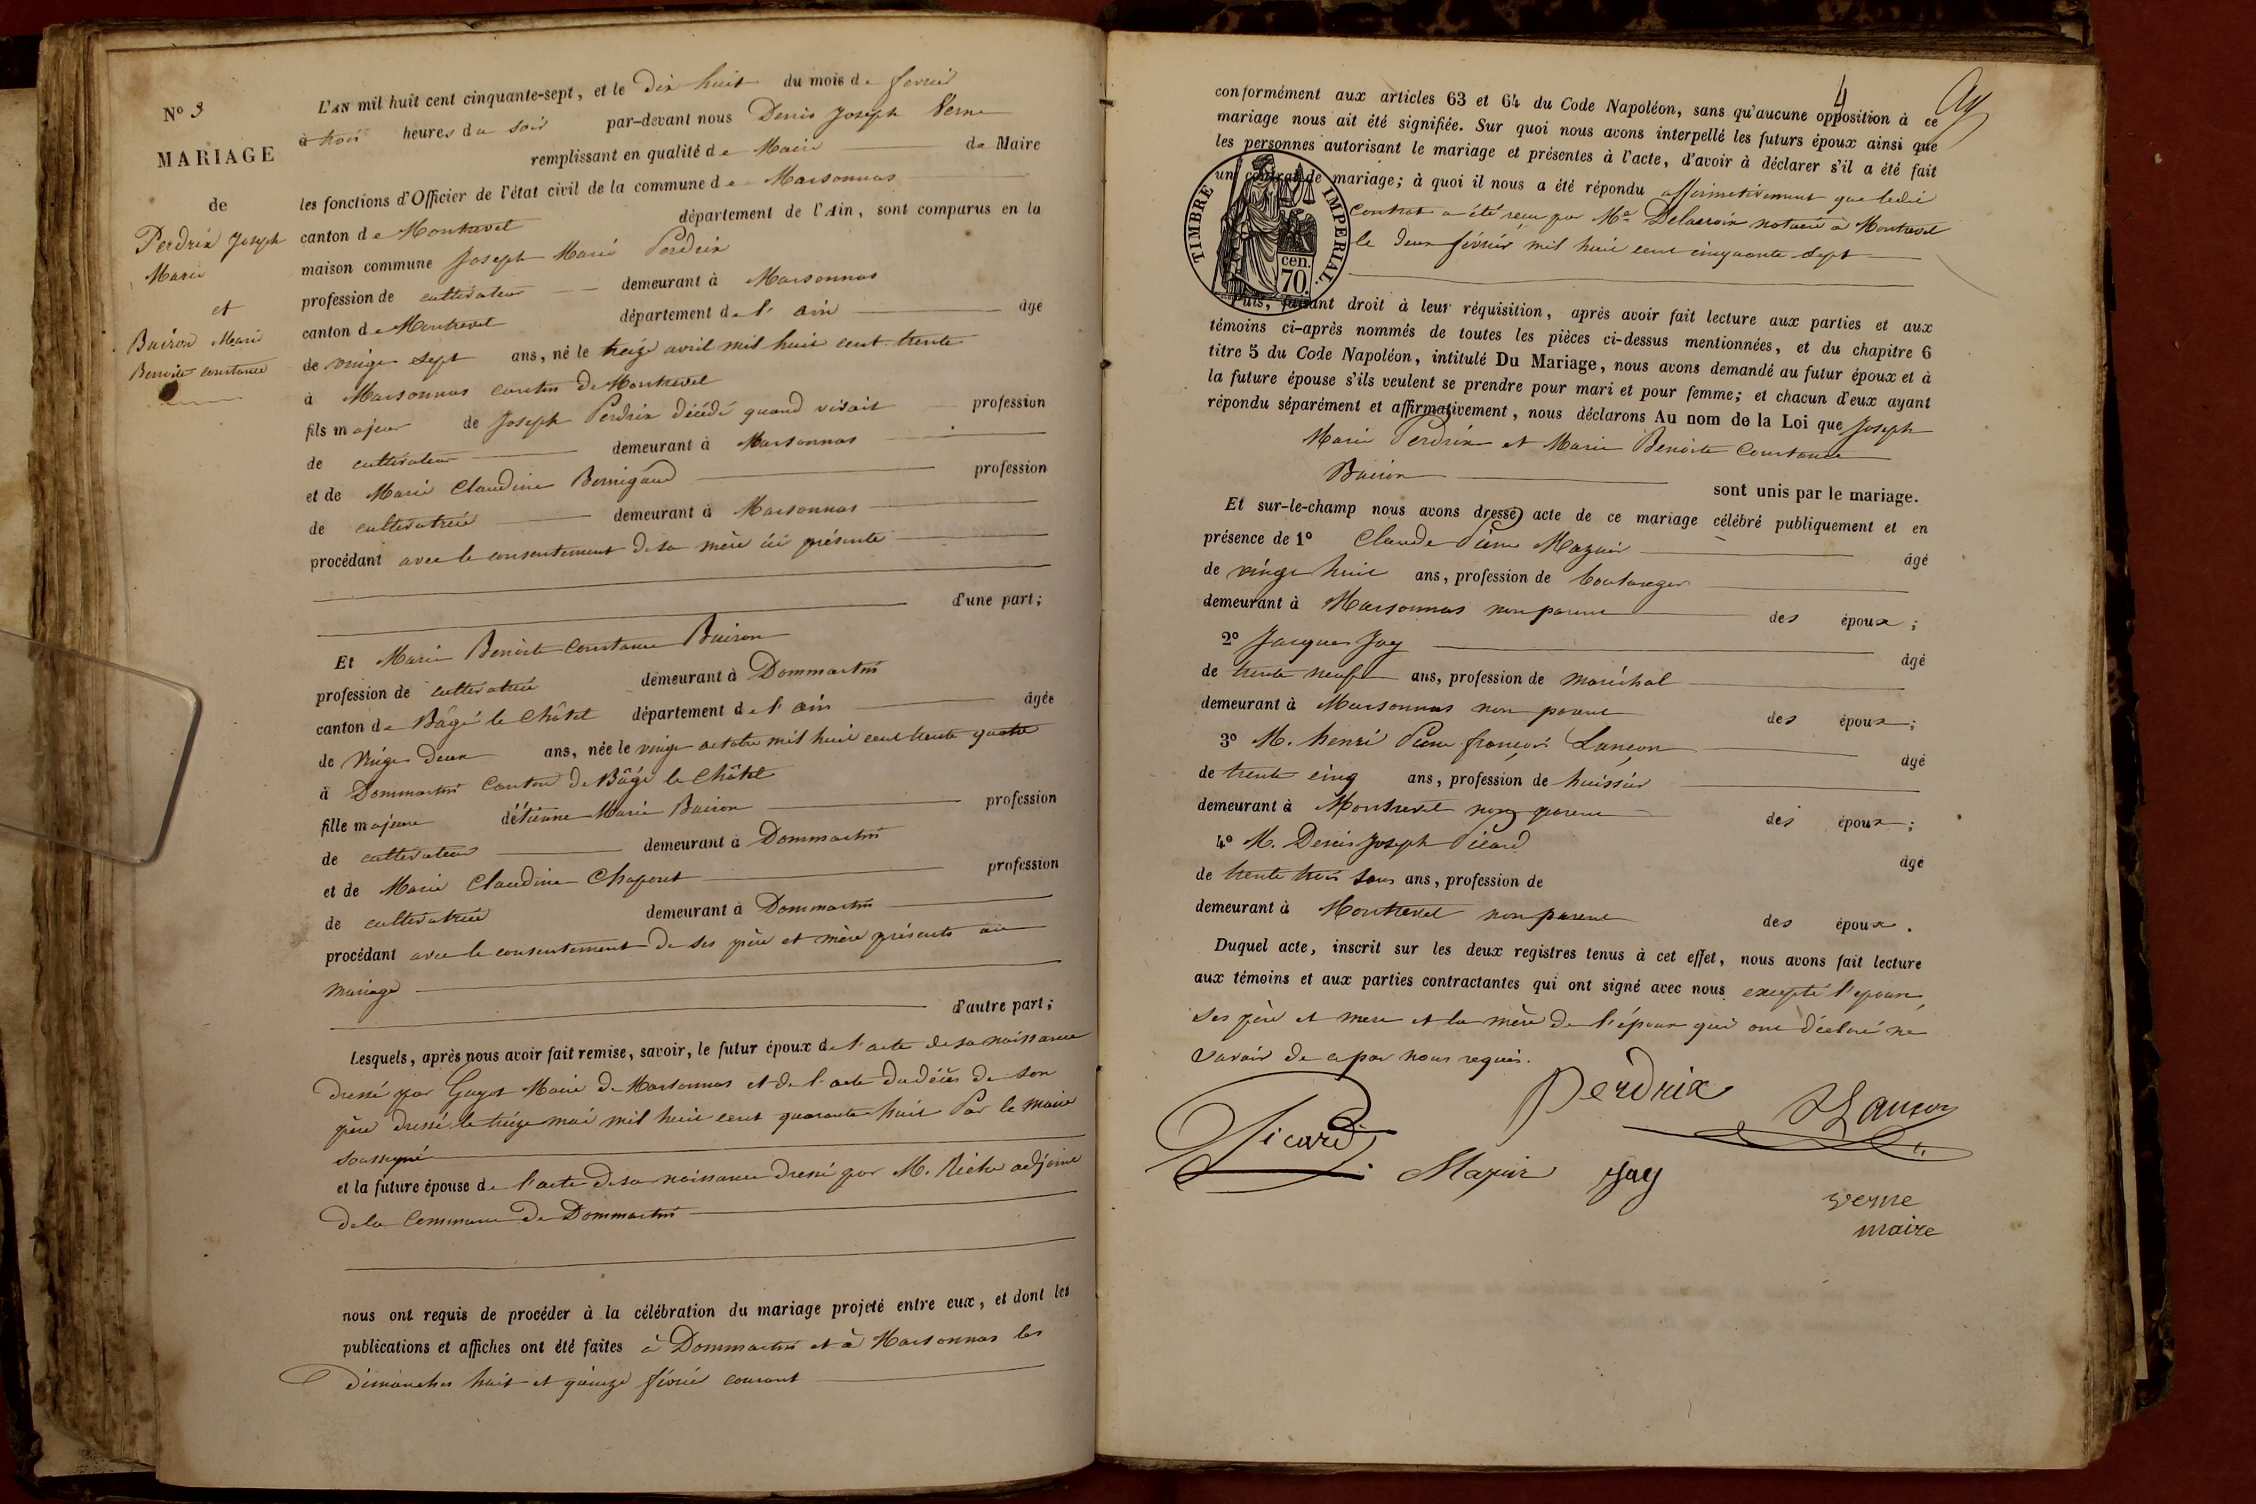 N° 3
MARIAGE
de
Perdrix Joseph
Marie
et
Buiron Marie
Benoite constance
L'AN mil huit cent cinquante-sept, et le dix huit du mois de fevrier
à trois heures du soir par-devant nous Denis Joseph Verne
remplissant en qualité de Maire de Maire
les fonctions d'Officier de l'état civil de la commune de Marsonnas
canton de Montrevel département de l'Ain, sont comparus en la
maison commune Joseph Marie Perdrix
profession de cultivateur demeurant à Marsonnas
canton de Montrevel département de l'ain âgé
de vingt sept ans, né le treize avril mil huit cent trente
à Marsonnas canton de Montrevel
fils majeur de Joseph Perdrix décédé quand vivait profession
de cultivateur demeurant à Marsonnas
et de Marie Claudine Bornigaud profession
de cultivatrice demeurant à Marsonnas
procédant avec le consentement de sa mère ici présente
d'une part;
Et Marie Benoite Constance Buiron
profession de cultivatrice demeurant à Dommartin
canton de Bâgé le Châtel département de l'ain âgée
de vingt deux ans, née le vingt octobre mil huit cent trente quatre
à Dommartin Canton de Bâgé le Châtel
fille majeure d'étienne Marie Buiron profession
de cultivateur demeurant à Dommartin
et de Marie Claudine Chaponet profession
de cultivatrice demeurant à Dommartin
procédant avec le consentement de ses père et mère présents au
mariage
d'autre part;
Lesquels, après nous avoir fait remise, savoir, le futur époux de l'acte de sa naissance
dressé par Guyot Maire de Marsonnas et de l'acte du décès de son
père dressé le treize mai mil huit cent quarante huit Par le maire
soussigné
et la future épouse de l'acte de sa naissance dressé par M. Riche adjoint
de la Commune de Dommartin
nous ont requis de procéder à la célébration du mariage projeté entre eux, et dont les
publications et affiches ont été faites à Dommartin et à Marsonnas les
dimanches huit et quinze février courant
4
conformément aux articles 63 et 64 du Code Napoléon, sans qu'aucune opposition à ce
mariage nous ait été signifiée. Sur quoi nous avons interpellé les futurs époux ainsi que
les personnes autorisant le mariage et présentes à l'acte, d'avoir à déclarer s'il a été fait
un contrat de mariage; à quoi il nous a été répondu affirmativement que ledit
contrat a été reçu par Me Delacroix notaire à Montrevel
le deux février mil huit cent cinquante sept
TIMBRE IMPERIAL
cen.
70.
Puis, faisant droit à leur réquisition, après avoir fait lecture aux parties et aux
témoins ci-après nommés de toutes les pièces ci-dessus mentionnées, et du chapitre 6
titre 5 du Code Napoléon, intitulé Du Mariage, nous avons demandé au futur époux et à
la future épouse s'ils veulent se prendre pour mari et pour femme; et chacun d'eux ayant
répondu séparément et affirmativement, nous déclarons Au nom de la Loi que Joseph
Marie Perdrix et Marie Benoite Constance
Buiron sont unis par le mariage.
Et sur-le-champ nous avons dressé acte de ce mariage célébré publiquement et en
présence de 1° Claude Pierre Mazuir âgé
de vingt huit ans, profession de boulanger
demeurant à Marsonnas non parent des époux;
2° Jacques Jay âgé
de trente neuf ans, profession de maréchal
demeurant à Marsonnas non parent des époux;
3° M. henri Pierre françois Lançon âgé
de trente cinq ans, profession de huissier
demeurant à Montrevel non parent des époux;
4° M. Denis Joseph Picard âgé
de trente trois ans, profession de
demeurant à Montrevel non parent des époux.
Duquel acte, inscrit sur les deux registres tenus à cet effet, nous avons fait lecture
aux témoins et aux parties contractantes qui ont signé avec nous excepté l'épouse,
ses père et mere et la mère de l'époux qui ont déclaré ne
savoir de ce par nous requis.
Perdrix
Lançon
Picard
Mazuir
Jay
verne
maire